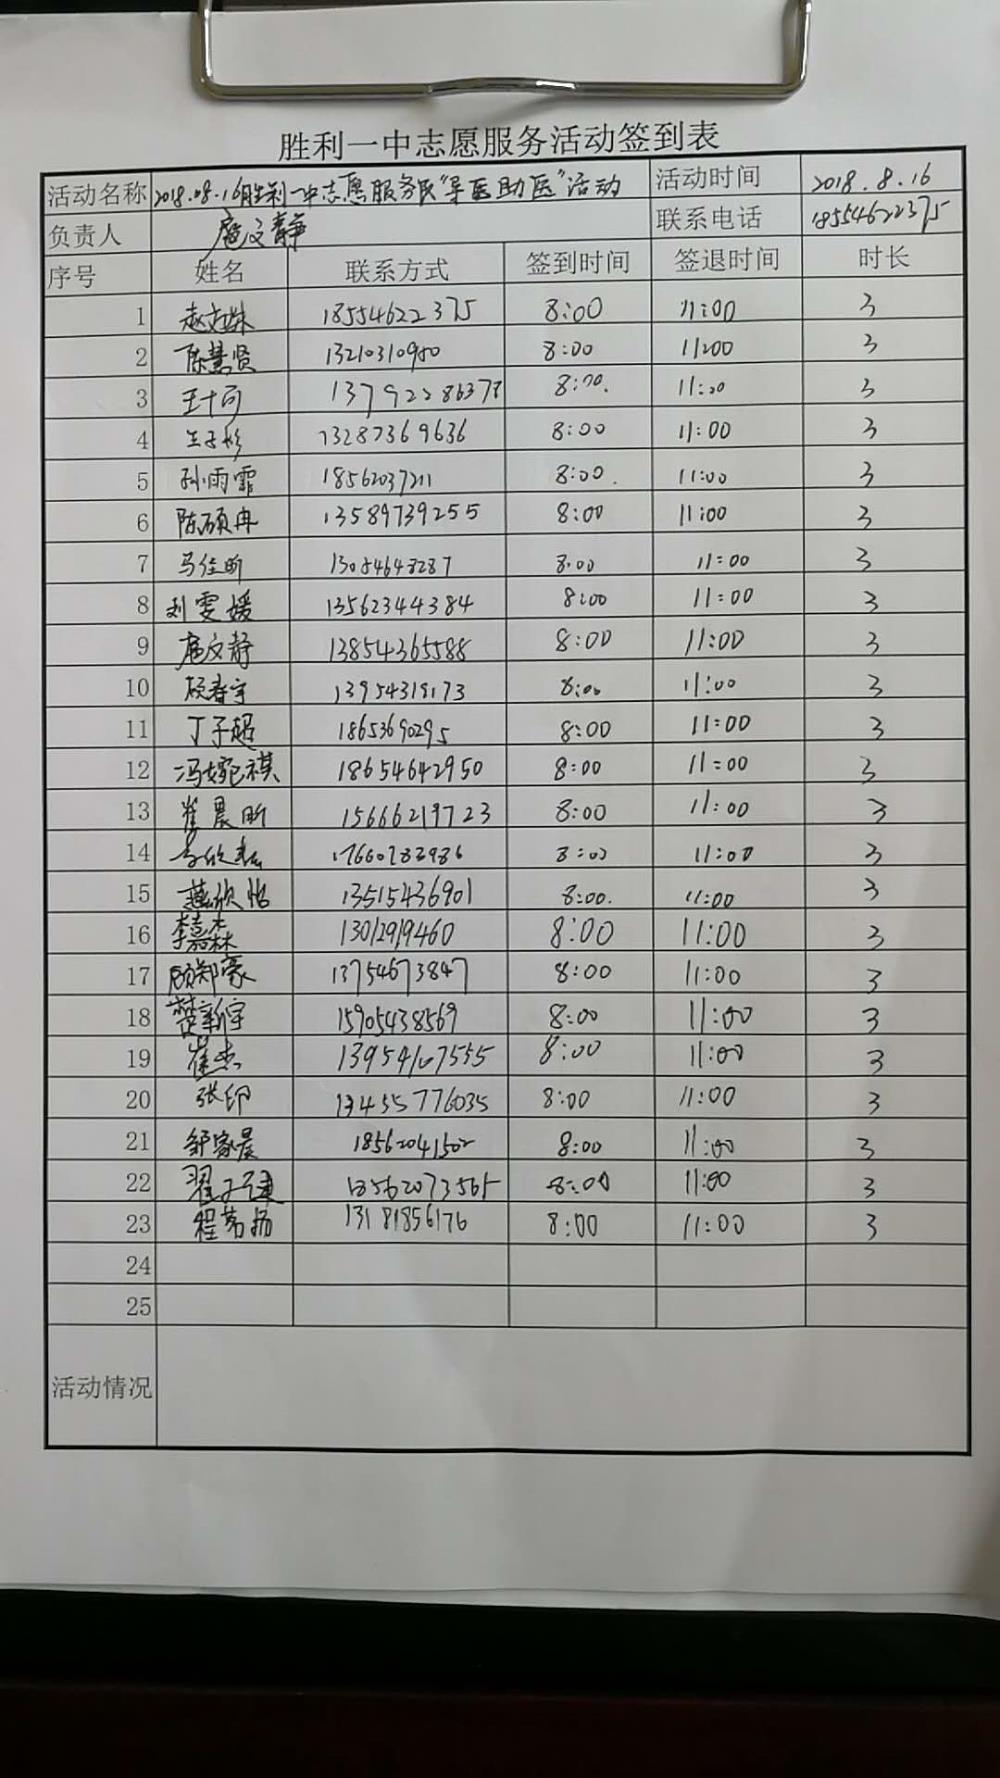 胜利一中志愿服务活动签到表
活动名称 2018.08.16胜利一中志愿服务队"导医助医"活动 活动时间 2018.8.16
负责人 庞文静 联系电话 18554622375
序号 姓名 联系方式 签到时间 签退时间 时长
1 赵文姝 18554622375 8:00 11:00 3
2 陈慧贤 13210310950 8:00 11:00 3
3 王十可 13792286378 8:00. 11:00 3
4 王子杉 13287369636 8:00 11:00 3
5 孙雨霏 18562037211 8:00. 11:00 3
6 陈硕冉 13589739255 8:00 11:00 3
7 马佳昕 13054648287 8:00 11:00 3
8 刘雯媛 13562344384 8:00 11:00 3
9 庞文静 13854365588 8:00 11:00 3
10 杨春宇 13954319173 8:00 11:00 3
11 丁子超 18653690295 8:00 11:00 3
12 冯婉祺 18654642950 8:00 11:00 3
13 崔晨昕 15666219723 8:00 11:00 3
14 17660283986 8:00 11:00 3
15 燕欣怡 13515436901 8:00. 11:00 3
16 李嘉森 13012919460 8:00 11:00 3
17 顾郑豪 13754673847 8:00 11:00 3
18 楚新宇 15905438569 8:00 11:00 3
19 崔杰 13954107555 8:00 11:00 3
20 张印 13455776035 8:00 11:00 3
21 邹家晨 18562041502 8:00 11:00 3
22 翟子健 18562073565 8:00 11:00 3
23 程芳扬 13181856176 8:00 11:00 3
24
25
活动情况